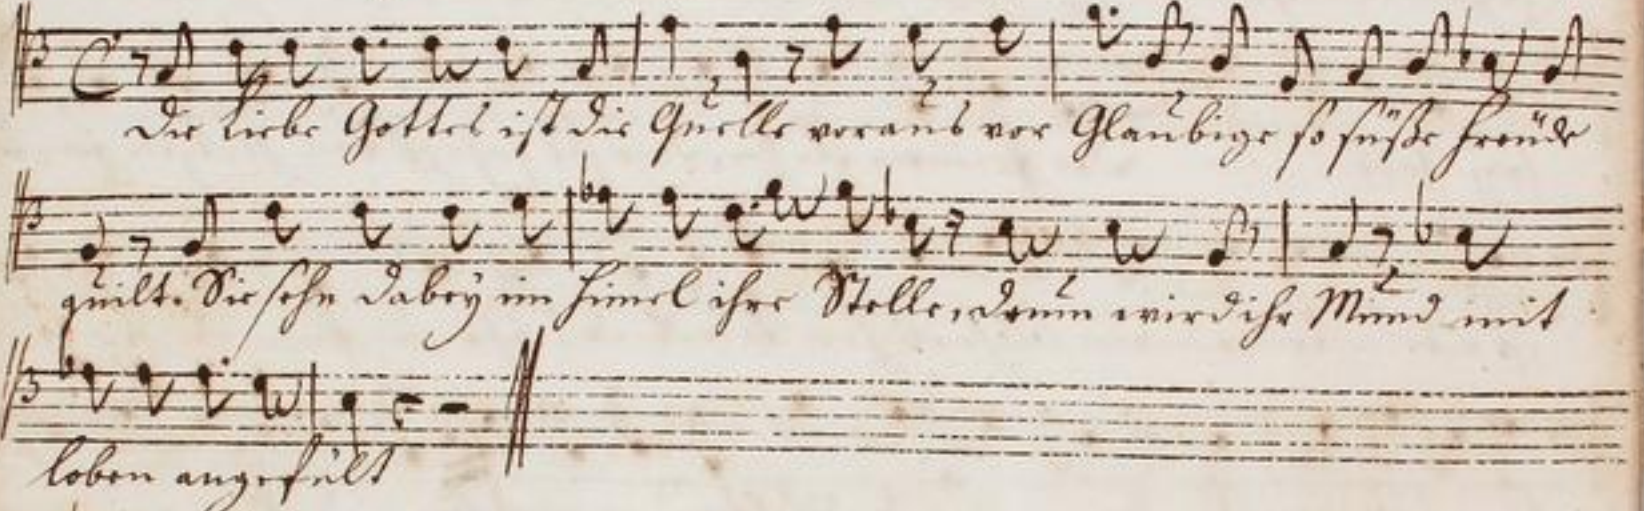 Die Liebe Gottes ist die Quelle voraus vor Glaubige so süße Freude
quilt. Sie sehn dabey im Himel ihre Stelle, drum wird ihr Mund mit
loben angefült